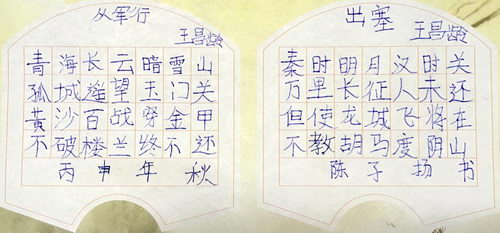 从军行
王昌龄
青海长云暗雪山
孤城遥望玉门关
黄沙百战穿金甲
不破楼兰终不还
丙申年秋
出塞
王昌龄
秦时明月汉时关
万里长征人未还
但使龙城飞将在
不教胡马度阴山
陈子扬书